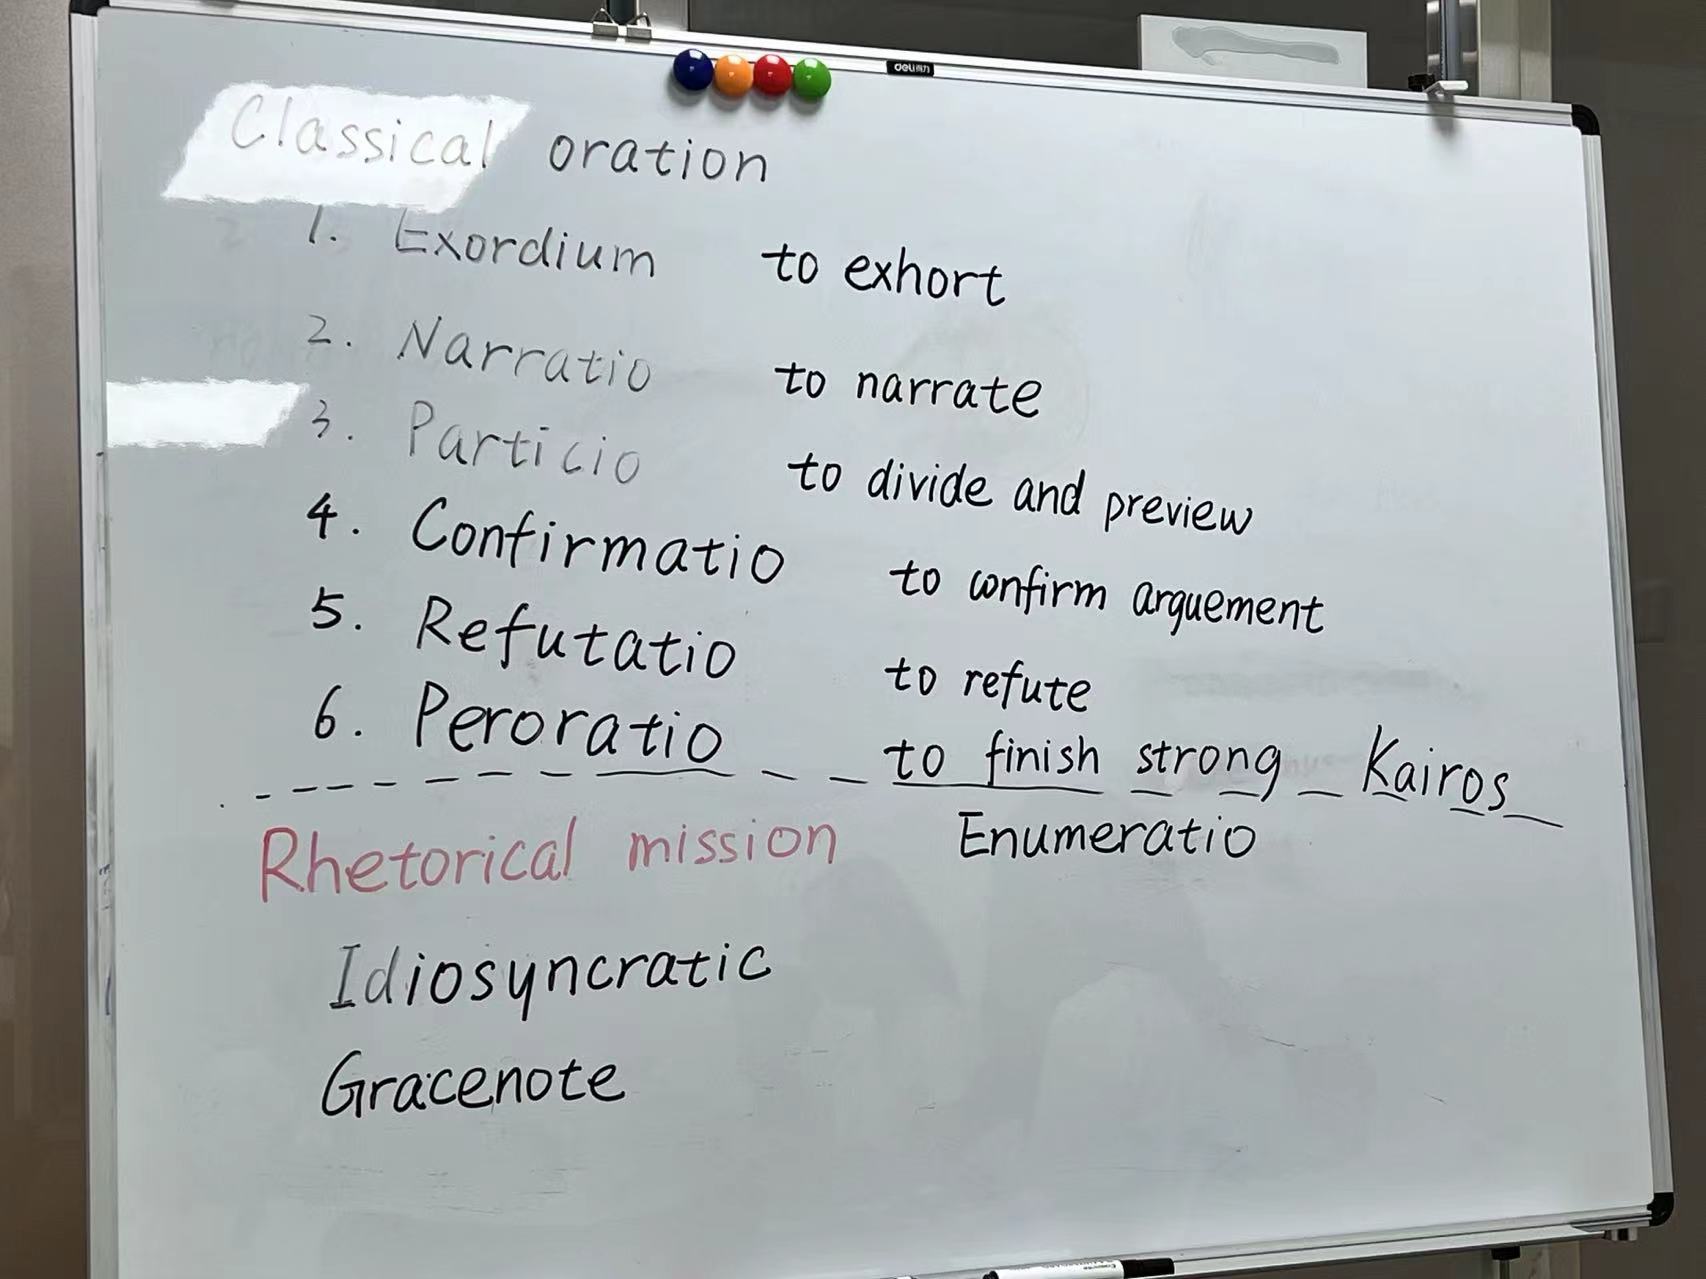 deli得力
Classical oration
1. Exordium to exhort
2. Narratio to narrate
3. Particio to divide and preview
4. Confirmatio to confirm arguement
5. Refutatio to refute
6. Peroratio to finish strong Kairos
Rhetorical mission Enumeratio
Idiosyncratic
Gracenote